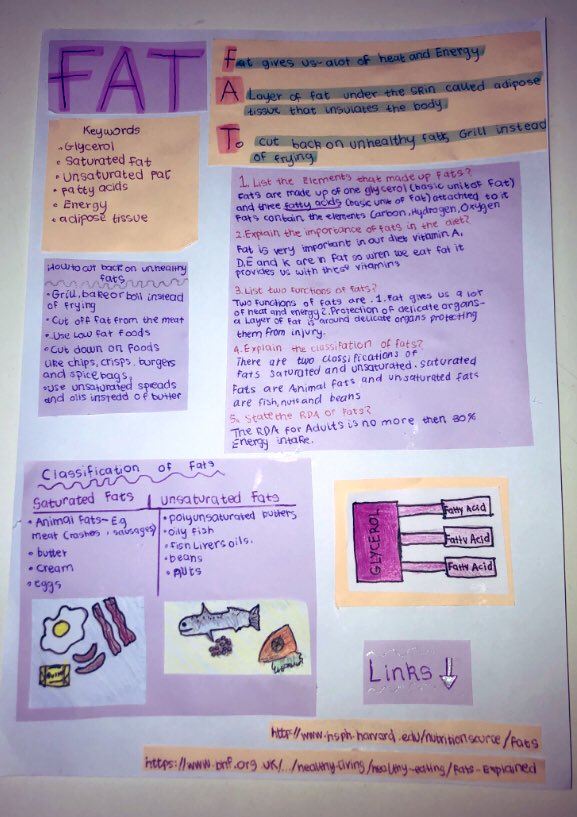 FAT
Fat gives us alot of heat and Energy.
A Layer of fat under the skin called adipose
tissue that insulates the body.
To cut back on unhealthy fats, Grill instead
of frying
Keywords
Glycerol
Saturated fat
Unsaturated fat
fatty acids
Energy
adipose tissue
How to cut back on unhealthy
fats
Grill, bake or boil instead
of frying
Cut off Fat from the meat
Use low fat foods
Cut down on foods
like chips, crisps, burgers
and spice bags.
Use unsaturated spreads
and oils instead of butter
1. List the Elements that made up fats?
Fats are made up of one glycerol (basic unit of fat)
and three fatty acids (basic unit of fat) attached to it
Fats contain the elements Carbon, Hydrogen, Oxygen
2. Explain the importance of fats in the diet?
Fat is very important in our diet vitamin A,
D, E and K are in fat so when we eat fat it
provides us with these vitamins
3. List two functions of fats?
Two functions of fats are. 1. Fat gives us a lot
of heat and energy 2. Protection of delicate organs-
a Layer of fat is around delicate organs protecting
them from injury.
4. Explain the classification of fats?
There are two classifications of
fats saturated and unsaturated. saturated
fats are Animal fats and unsaturated fats
are fish, nuts and beans
5. State the RDA of fats?
The RDA for Adults is no more then 30%
Energy intake.
Classification of fats
Saturated Fats
Animal fats- Eg
meat (rashers, sausages)
butter
cream
eggs
Unsaturated Fats
polyunsaturated butters
oily fish
fish livers oils.
beans
nuts
GLYCEROL
Fatty Acid
Fatty Acid
Fatty Acid
Links
http://www.hsph.harvard.edu/nutritionsource/fats
https://www.bhf.org.uk/.../healthy-living/healthy-eating/fats-Explained